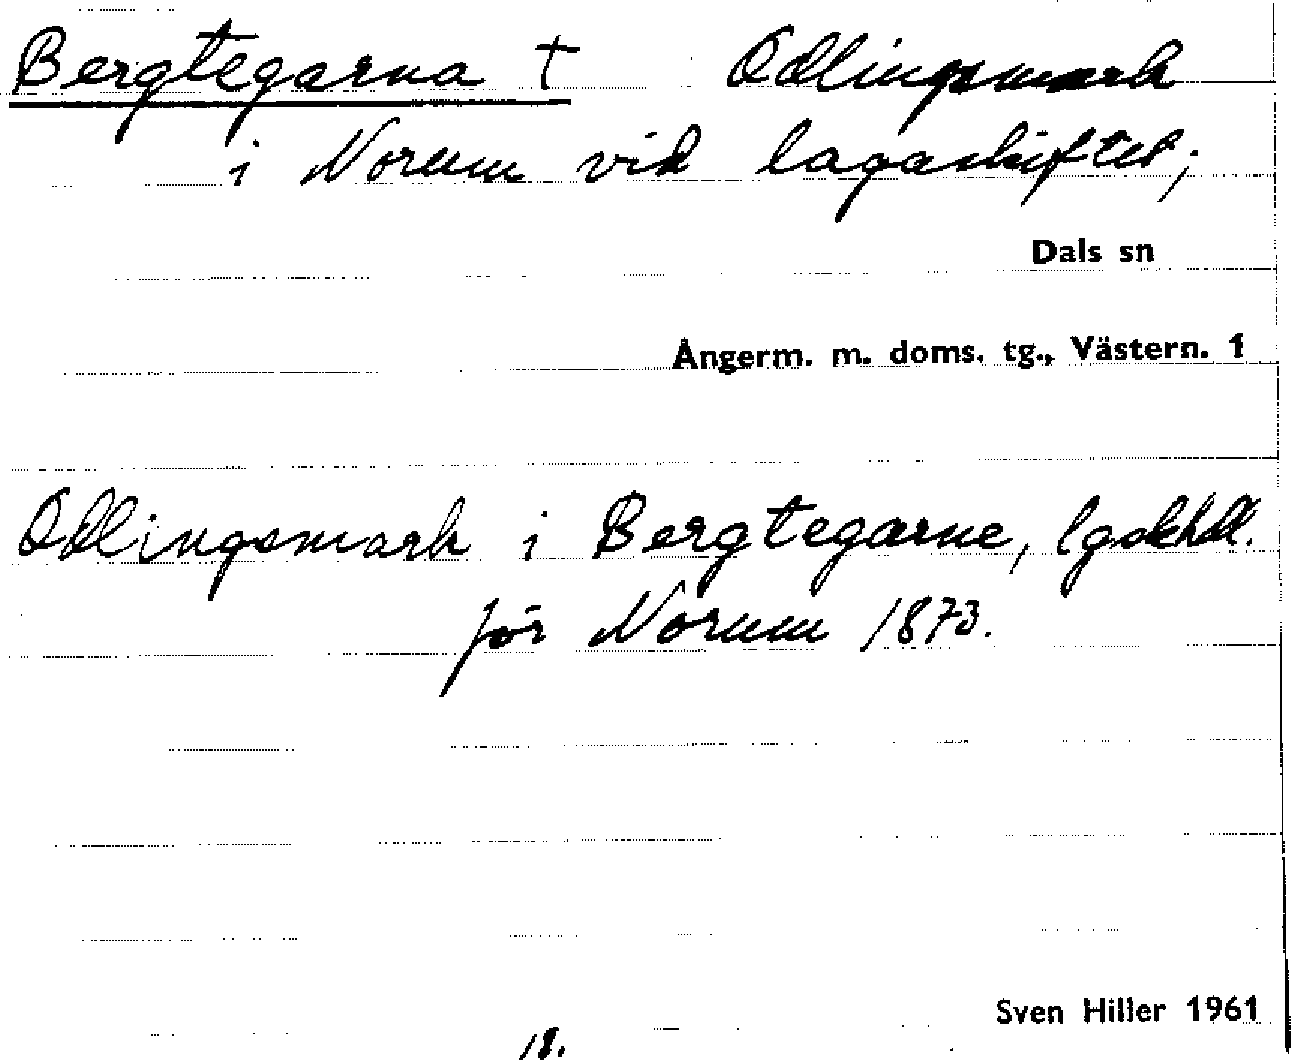 Bergtegarna † Odlingsmark
i Norum vid lagaskiftet;
Dals sn
Ångerm. m. doms. tg., Västern. 1
Odlingsmark i Bergtegarne, lgskhdl.
för Norum 1873.
Sven Hiller 1961
18.